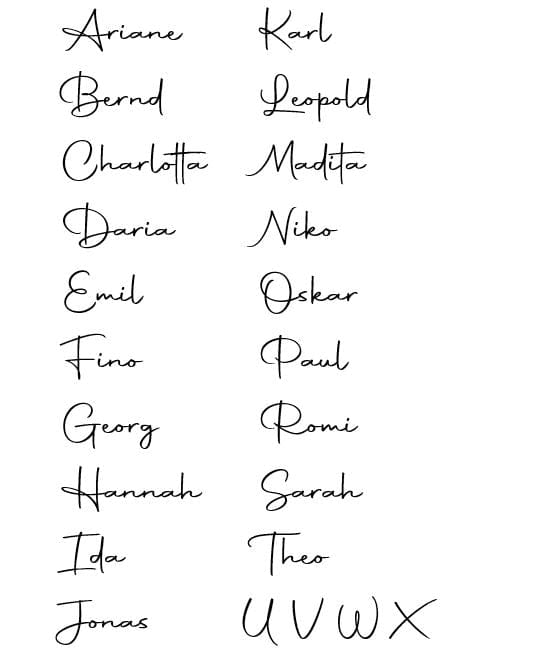 Ariane
Bernd
Charlotta
Daria
Emil
Fino
Georg
Hannah
Ida
Jonas
Karl
Leopold
Madita
Niko
Oskar
Paul
Romi
Sarah
Theo
U V W X